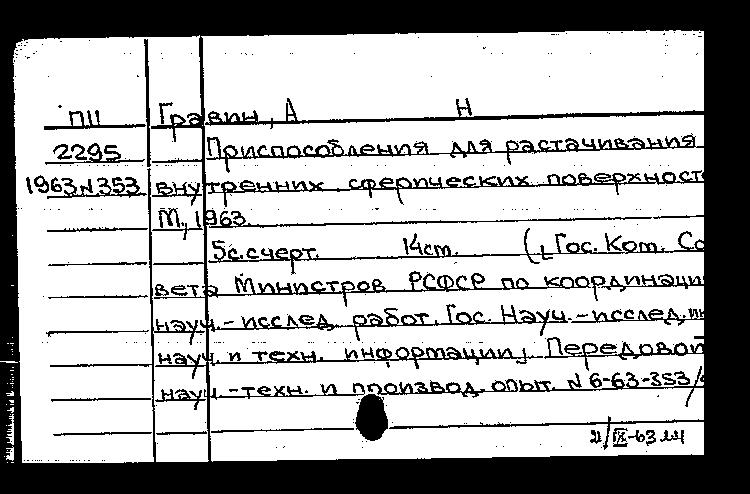 П11 Гравин, А Н
2295 Приспособления для растачивания
1963 N 353 внутренних сферических поверхност
М., 1963.
5с. счерт. 14cm. (Гос. Ком. Со
вета Министров РСФСР по координаци
науч.-исслед. работ. Гос. Науч.-исслед. ин
науч. и техн. информации, Передовой
науч.-техн. и производ. опыт. N 6-63-353/
IX-63